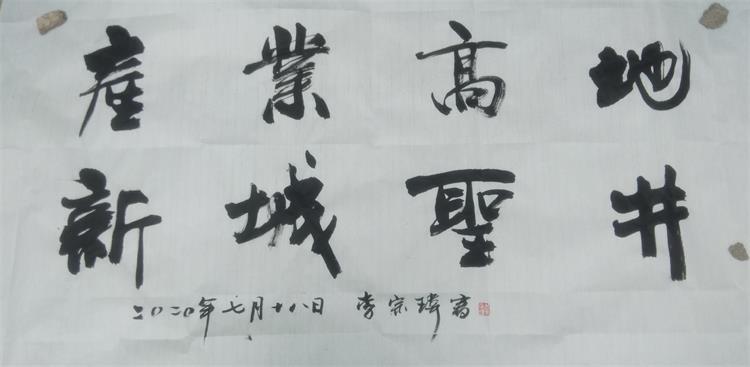 産業高地
新城聖井
二〇二〇年七月十八日 李宗